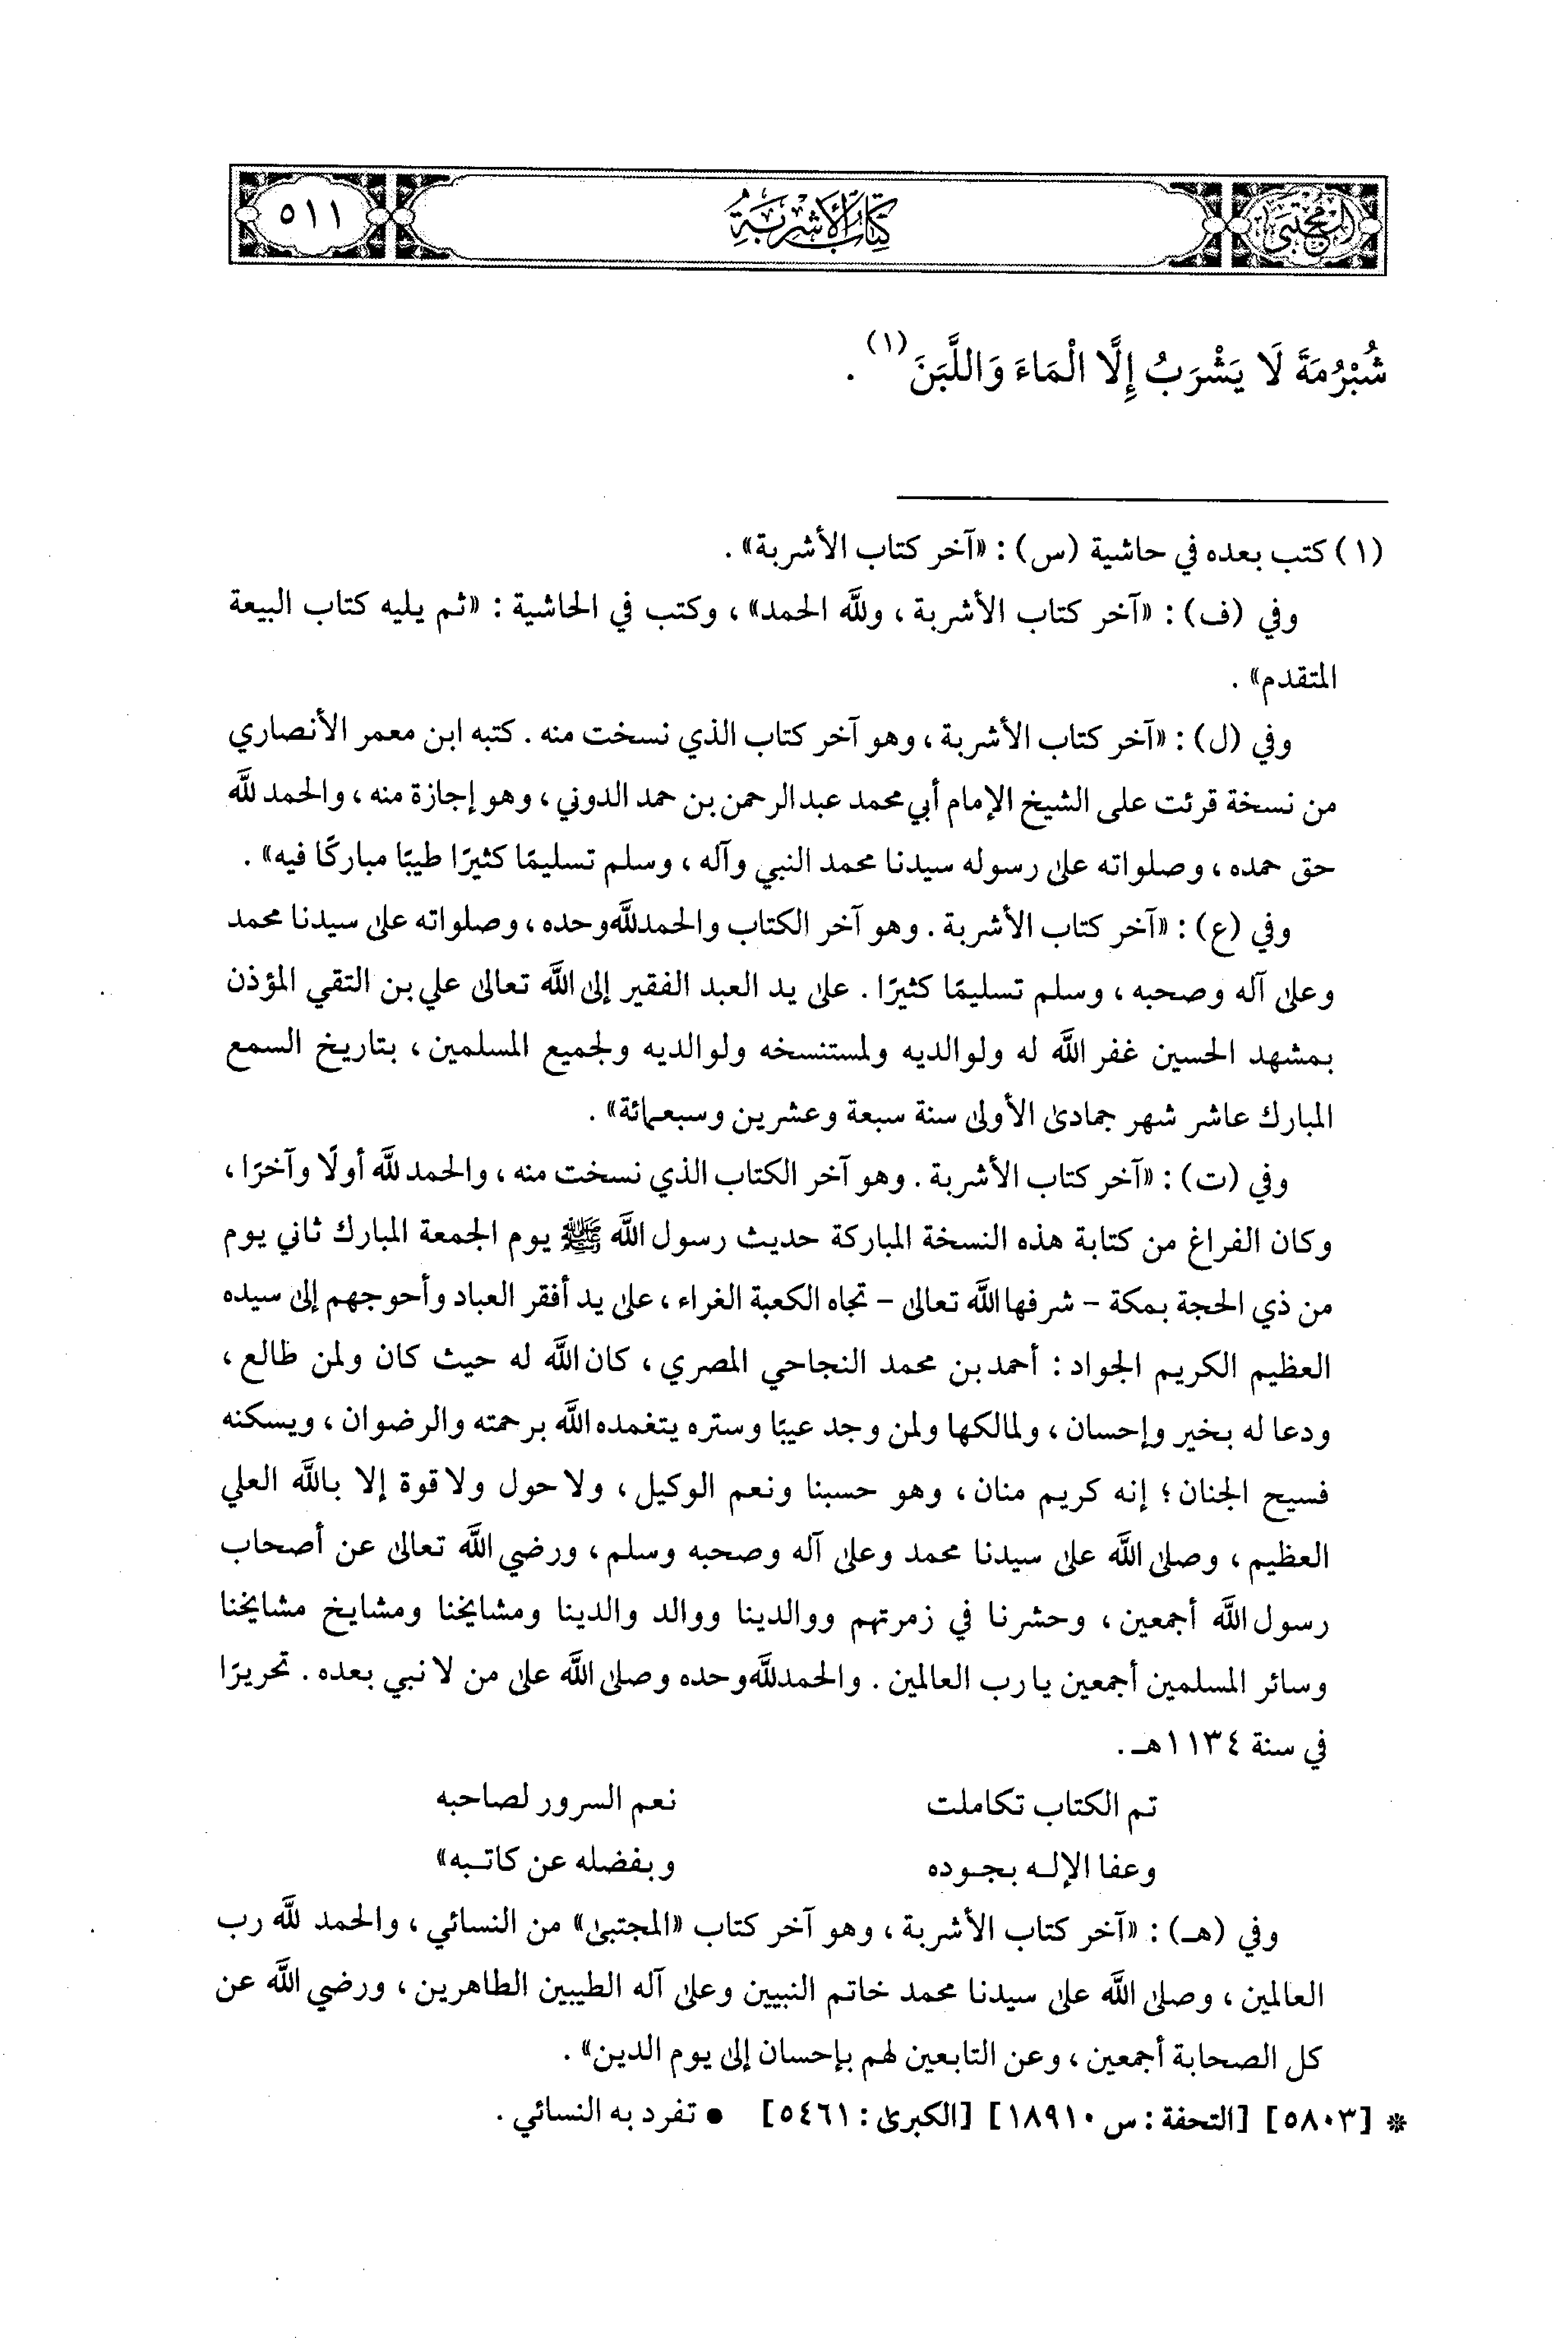 المجتبى
كتاب الأشربة
٥١١
شُبْرُمَةَ لَا يَشْرَبُ إِلَّا الْمَاءَ وَاللَّبَنَ (١) .
(١) كتب بعده في حاشية (س) : «آخر كتاب الأشربة» .
وفي (ف) : «آخر كتاب الأشربة ، ولله الحمد» ، وكتب في الحاشية : «ثم يليه كتاب البيعة
المتقدم» .
وفي (ل) : «آخر كتاب الأشربة ، وهو آخر كتاب الذي نسخت منه . كتبه ابن معمر الأنصاري
من نسخة قرئت على الشيخ الإمام أبي محمد عبدالرحمن بن حمد الدوني ، وهو إجازة منه ، والحمد لله
حق حمده ، وصلواته على رسوله سيدنا محمد النبي وآله ، وسلم تسليمًا كثيرًا طيبًا مباركًا فيه» .
وفي (ع) : «آخر كتاب الأشربة . وهو آخر الكتاب والحمدلله وحده ، وصلواته على سيدنا محمد
وعلى آله وصحبه ، وسلم تسليمًا كثيرًا . على يد العبد الفقير إلى الله تعالى علي بن التقي المؤذن
بمشهد الحسين غفر الله له ولوالديه ولمستنسخه ولوالديه ولجميع المسلمين ، بتاريخ السمع
المبارك عاشر شهر جمادى الأولى سنة سبعة وعشرين وسبعمائة» .
وفي (ت) : «آخر كتاب الأشربة . وهو آخر الكتاب الذي نسخت منه ، والحمد لله أولًا وآخرًا ،
وكان الفراغ من كتابة هذه النسخة المباركة حديث رسول الله ﷺ يوم الجمعة المبارك ثاني يوم
من ذي الحجة بمكة - شرفها الله تعالى - تجاه الكعبة الغراء ، على يد أفقر العباد وأحوجهم إلى سيده
العظيم الكريم الجواد : أحمد بن محمد النجاحي المصري ، كان الله له حيث كان ولمن طالع ،
ودعا له بخير وإحسان ، ولمالكها ولمن وجد عيبًا وستره يتغمده الله برحمته والرضوان ، ويسكنه
فسيح الجنان ؛ إنه كريم منان ، وهو حسبنا ونعم الوكيل ، ولا حول ولا قوة إلا بالله العلي
العظيم ، وصلى الله على سيدنا محمد وعلى آله وصحبه وسلم ، ورضي الله تعالى عن أصحاب
رسول الله أجمعين ، وحشرنا في زمرتهم ووالدينا ووالد والدينا ومشايخنا ومشايخ مشايخنا
وسائر المسلمين أجمعين يا رب العالمين . والحمدلله وحده وصلى الله على من لا نبي بعده . تحريرًا
في سنة ١١٣٤هـ .
تم الكتاب تكاملت نعم السرور لصاحبه
وعفا الإله بجوده وبفضله عن كاتبه»
وفي (هـ) : «آخر كتاب الأشربة ، وهو آخر كتاب «المجتبى» من النسائي ، والحمد لله رب
العالمين ، وصلى الله على سيدنا محمد خاتم النبيين وعلى آله الطيبين الطاهرين ، ورضي الله عن
كل الصحابة أجمعين ، وعن التابعين لهم بإحسان إلى يوم الدين» .
* [٥٨٠٣] [التحفة : س ١٨٩١٠] [الكبرى : ٥٤٦١] • تفرد به النسائي .